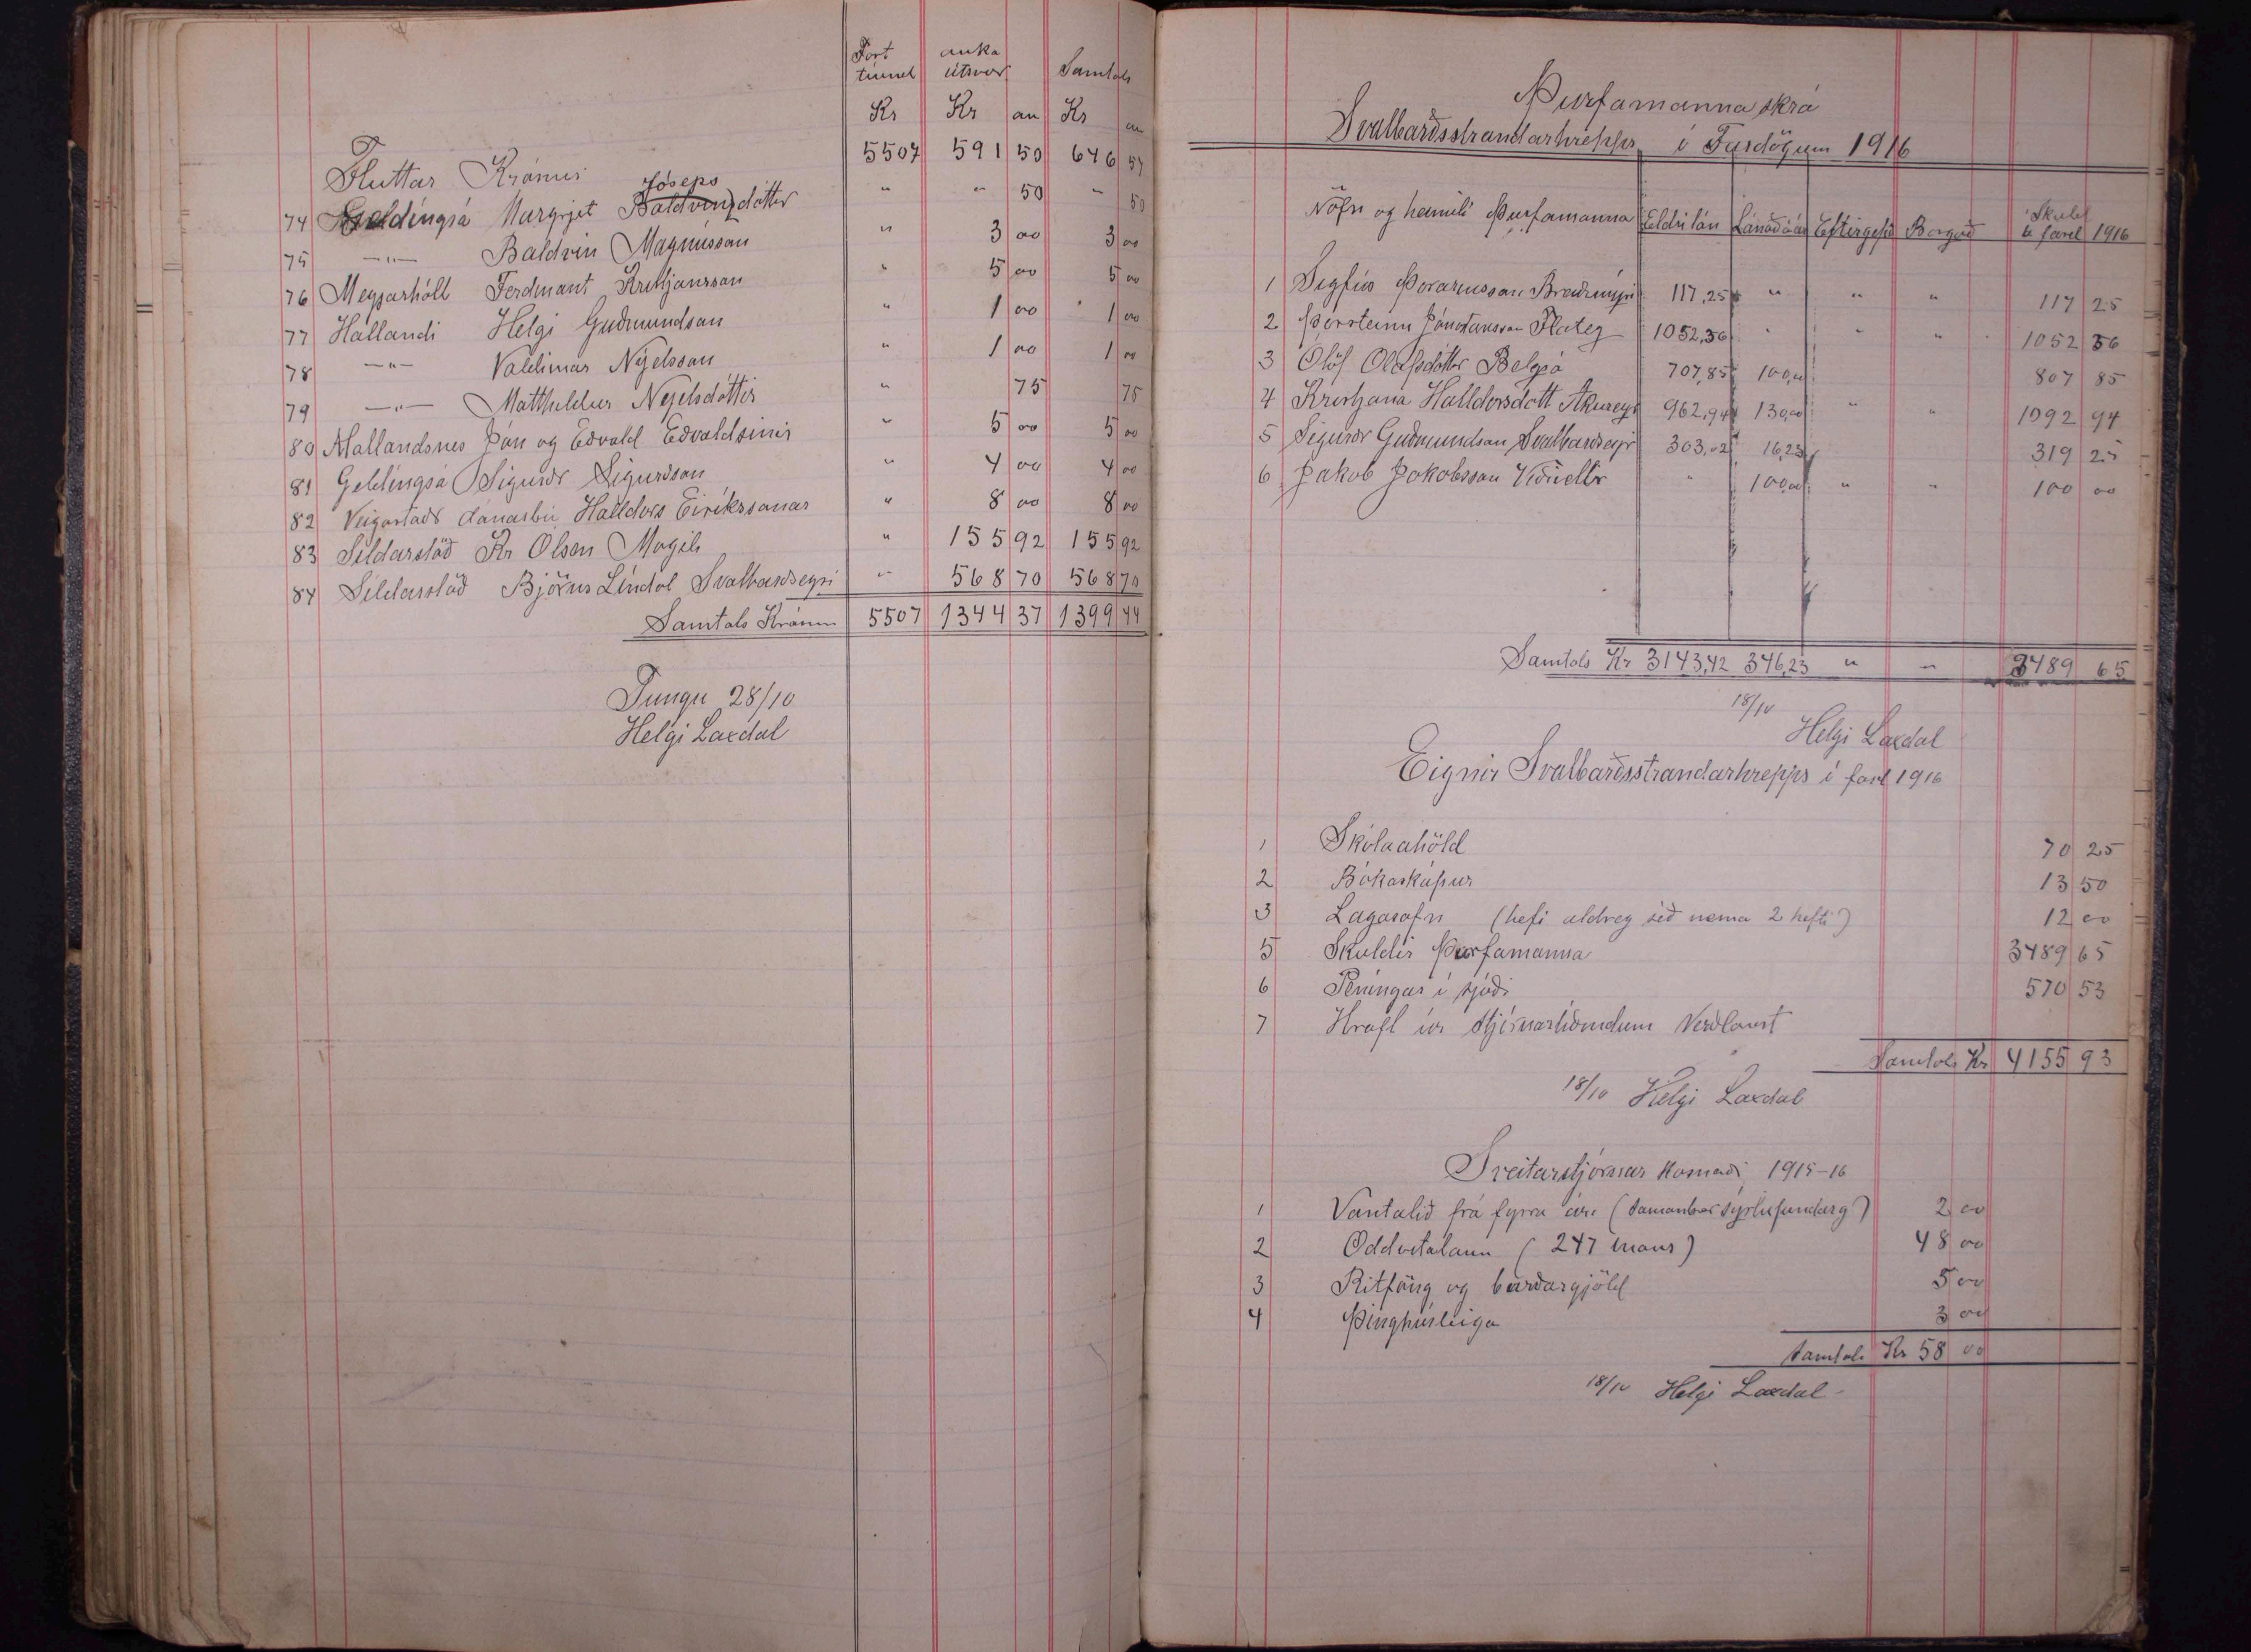 Fort auka
tiund útsvar Samtals
Kr Kr au Kr au
Fluttar Krónur 5507 591 50 646 57
Jóseps
74 Geldíngsá Margrjet Baldvinsdóttir " " 50 " 50
75 —"— Baldvin Magnússon " 3 00 3 00
76 Meyjarhóll Ferdinant Kristjánsson " 5 00 5 00
77 Hallandi Helgi Guðmundsson " 1 00 1 00
78 —"— Valdimar Níelsson " 1 00 1 00
79 —"— Matthildur Níelsdóttir " 75 75
80 Hallandsnes Jón og Edvald Edvaldsinir " 5 00 5 00
81 Geldíngsá Sigurðr Sigurðson " 4 00 4 00
82 Veigastaðr dánarbú Halldórs Eiríkssonar " 8 00 8 00
83 Síldarstöð Kr Olsen Mógili " 155 92 155 92
84 Sildarstöð Björns Líndal Svalbarðseyri " 568 70 568 70
Samtals Krónur 5507 1344 37 1399 44
Tungu 28/10
Helgi Laxdal
Þurfamannaskrá
Svalbarðsstrandarhrepps í Fardögum 1916
Nöfn og heimili Þurfamanna Eldri lán Lánað á ár Eftirgefið Borgað Skuld í fard 1916
1 Sigfús Þorarinsson 117,25 " " " 117 25
2 Þorsteinn Jónatansson Flatey 1052,56 " " " 1052 56
3 Ólöf Olafsdóttir Belgsá 707,85 100,00 807 85
4 Kristjana Halldórsdótt Akureyr 962,94 130,00 " " 1092 94
5 Sigurðr Guðmundson Svalbarðseyr 303,02 16,23 319 25
6 Jakob Jakobsson " 100,00 " " 100 00
Samtals Kr 3143,42 346,23 " " 3489 65
18/10
Helgi Laxdal
Eignir Svalbarðsstrandarhrepps í fard 1916
1 Skólaáhöld 70 25
2 Bókaskápur 13 50
3 Lagasafn (hefi aldreg séð nema 2 hefti) 12 00
5 Skuldir Þurfamanna 3489 65
6 Peningar í sjóði 570 53
7 Hrafl úr stjórnartíðindum Verðlaust
Samtals Kr 4155 93
18/10 Helgi Laxdal
Sveitarstjórnar Kosnaðr 1915-16
1 Vantalið frá fyrra ári (samanber sýslufundarg) 2 00
2 Oddvitalaun (247 mans) 48 00
3 Ritföng og burðargjöld 5 00
4 Þinghúsleiga 3 00
Samtals Kr 58 00
18/10 Helgi Laxdal